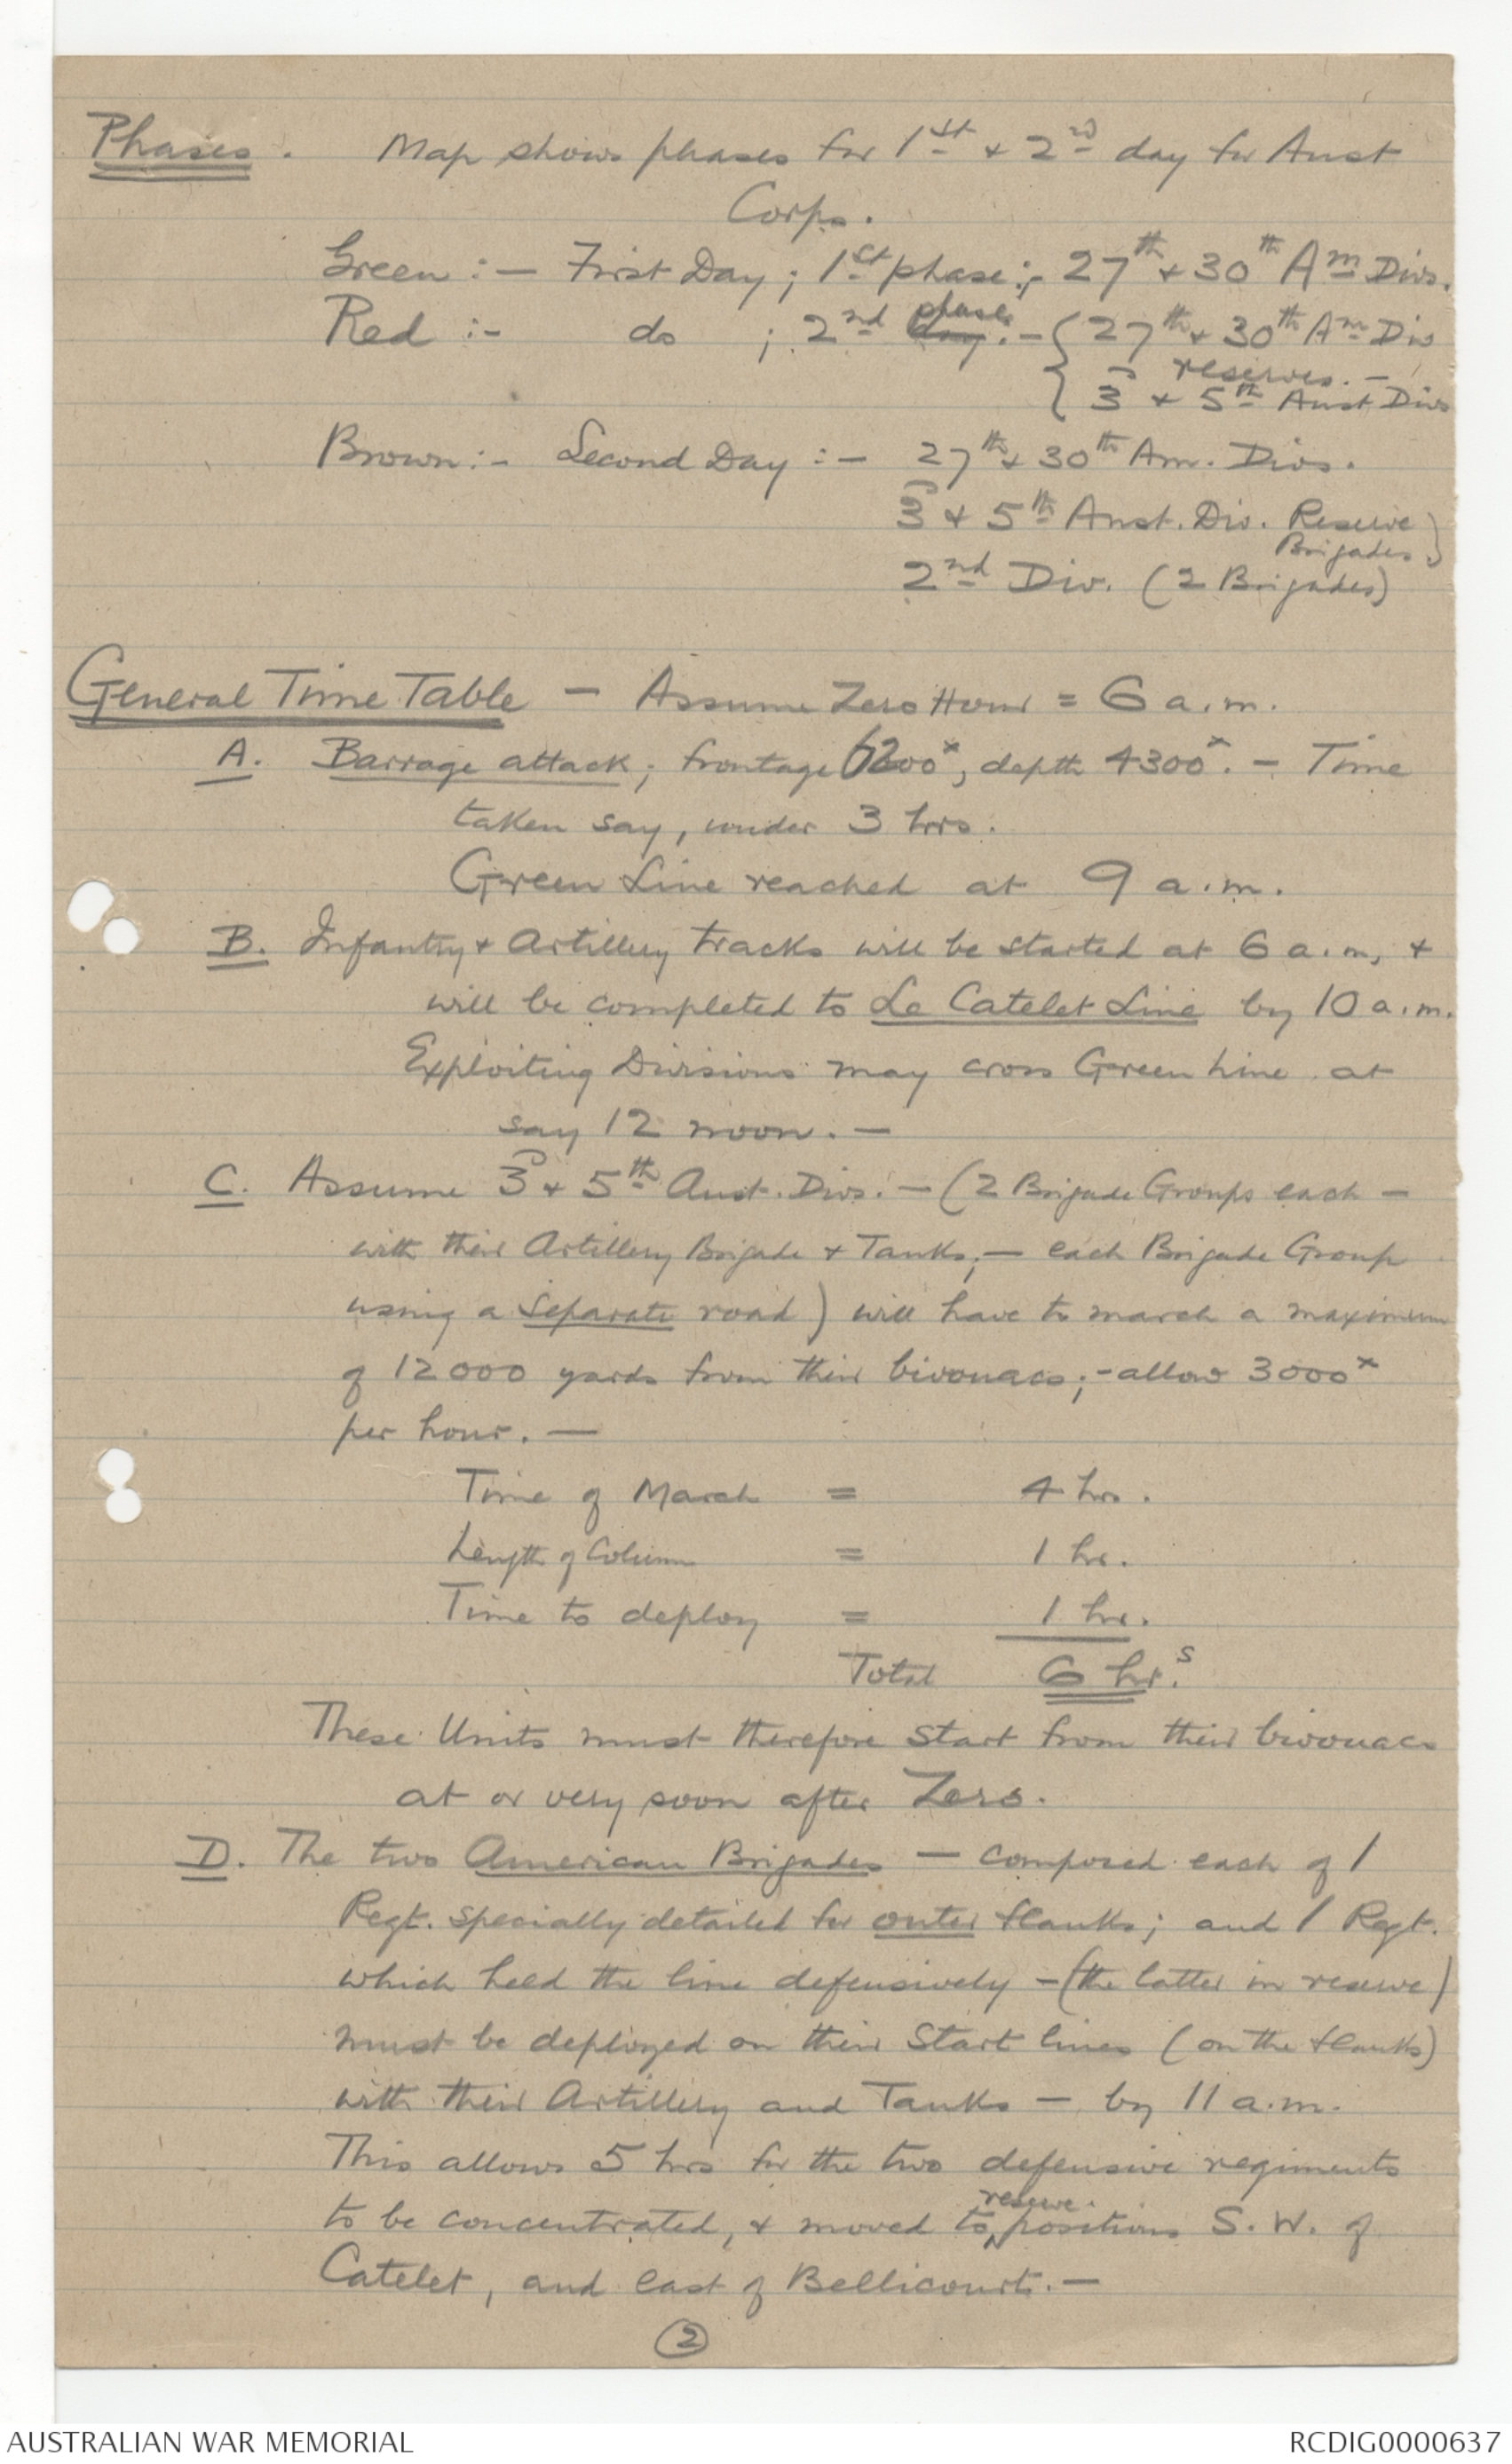 Phases. Map shows phases for 1st + 2nd day for Aust
Corps.
Green :— First Day; 1st phase;- 27th + 30th Am Divs.
Red :- do ; 2nd day phase.- { 27th + 30th Am Div
reserves. -
3rd + 5th Aust Divs
Brown :- Second Day :— 27th + 30th Am. Divs.
3rd + 5th Aust. Div. Reserve
Brigades.)
2nd Div. (2 Brigades)
General Time Table — Assume Zero Hour = 6 a.m.
A. Barrage attack; frontage 6200x, depth 4300x. - Time
taken say, under 3 hrs.
Green Line reached at 9 a.m.
B. Infantry + Artillery tracks will be started at 6 a.m, +
will be completed to Le Catelet Line by 10 a.m.
Exploiting Divisions may cross Green Line at
say 12 noon. —
C. Assume 3rd + 5th Aust. Divs. — (2 Brigade Groups each —
with their Artillery Brigade + Tanks; — each Brigade Group
using a separate road) will have to march a maximum
of 12000 yards from their bivouacs;- allow 3000x
per hour. —
Time of March = 4 hrs.
Length of Column = 1 hr.
Time to deploy = 1 hr.
Total 6 hr.s
These Units must therefore start from their bivouacs
at or very soon after Zero.
D. The two American Brigades — composed each of 1
Regt. specially detailed for outer flanks; and 1 Regt.
which held the line defensively - (the latter in reserve)
must be deployed on their start lines (on the flanks)
with their Artillery and Tanks — by 11 a.m.
This allows 5 hrs for the two defensive regiments
to be concentrated, + moved to reserve positions S.W. of
Catelet, and east of Bellicourt. —
2
AUSTRALIAN WAR MEMORIAL RCDIG0000637